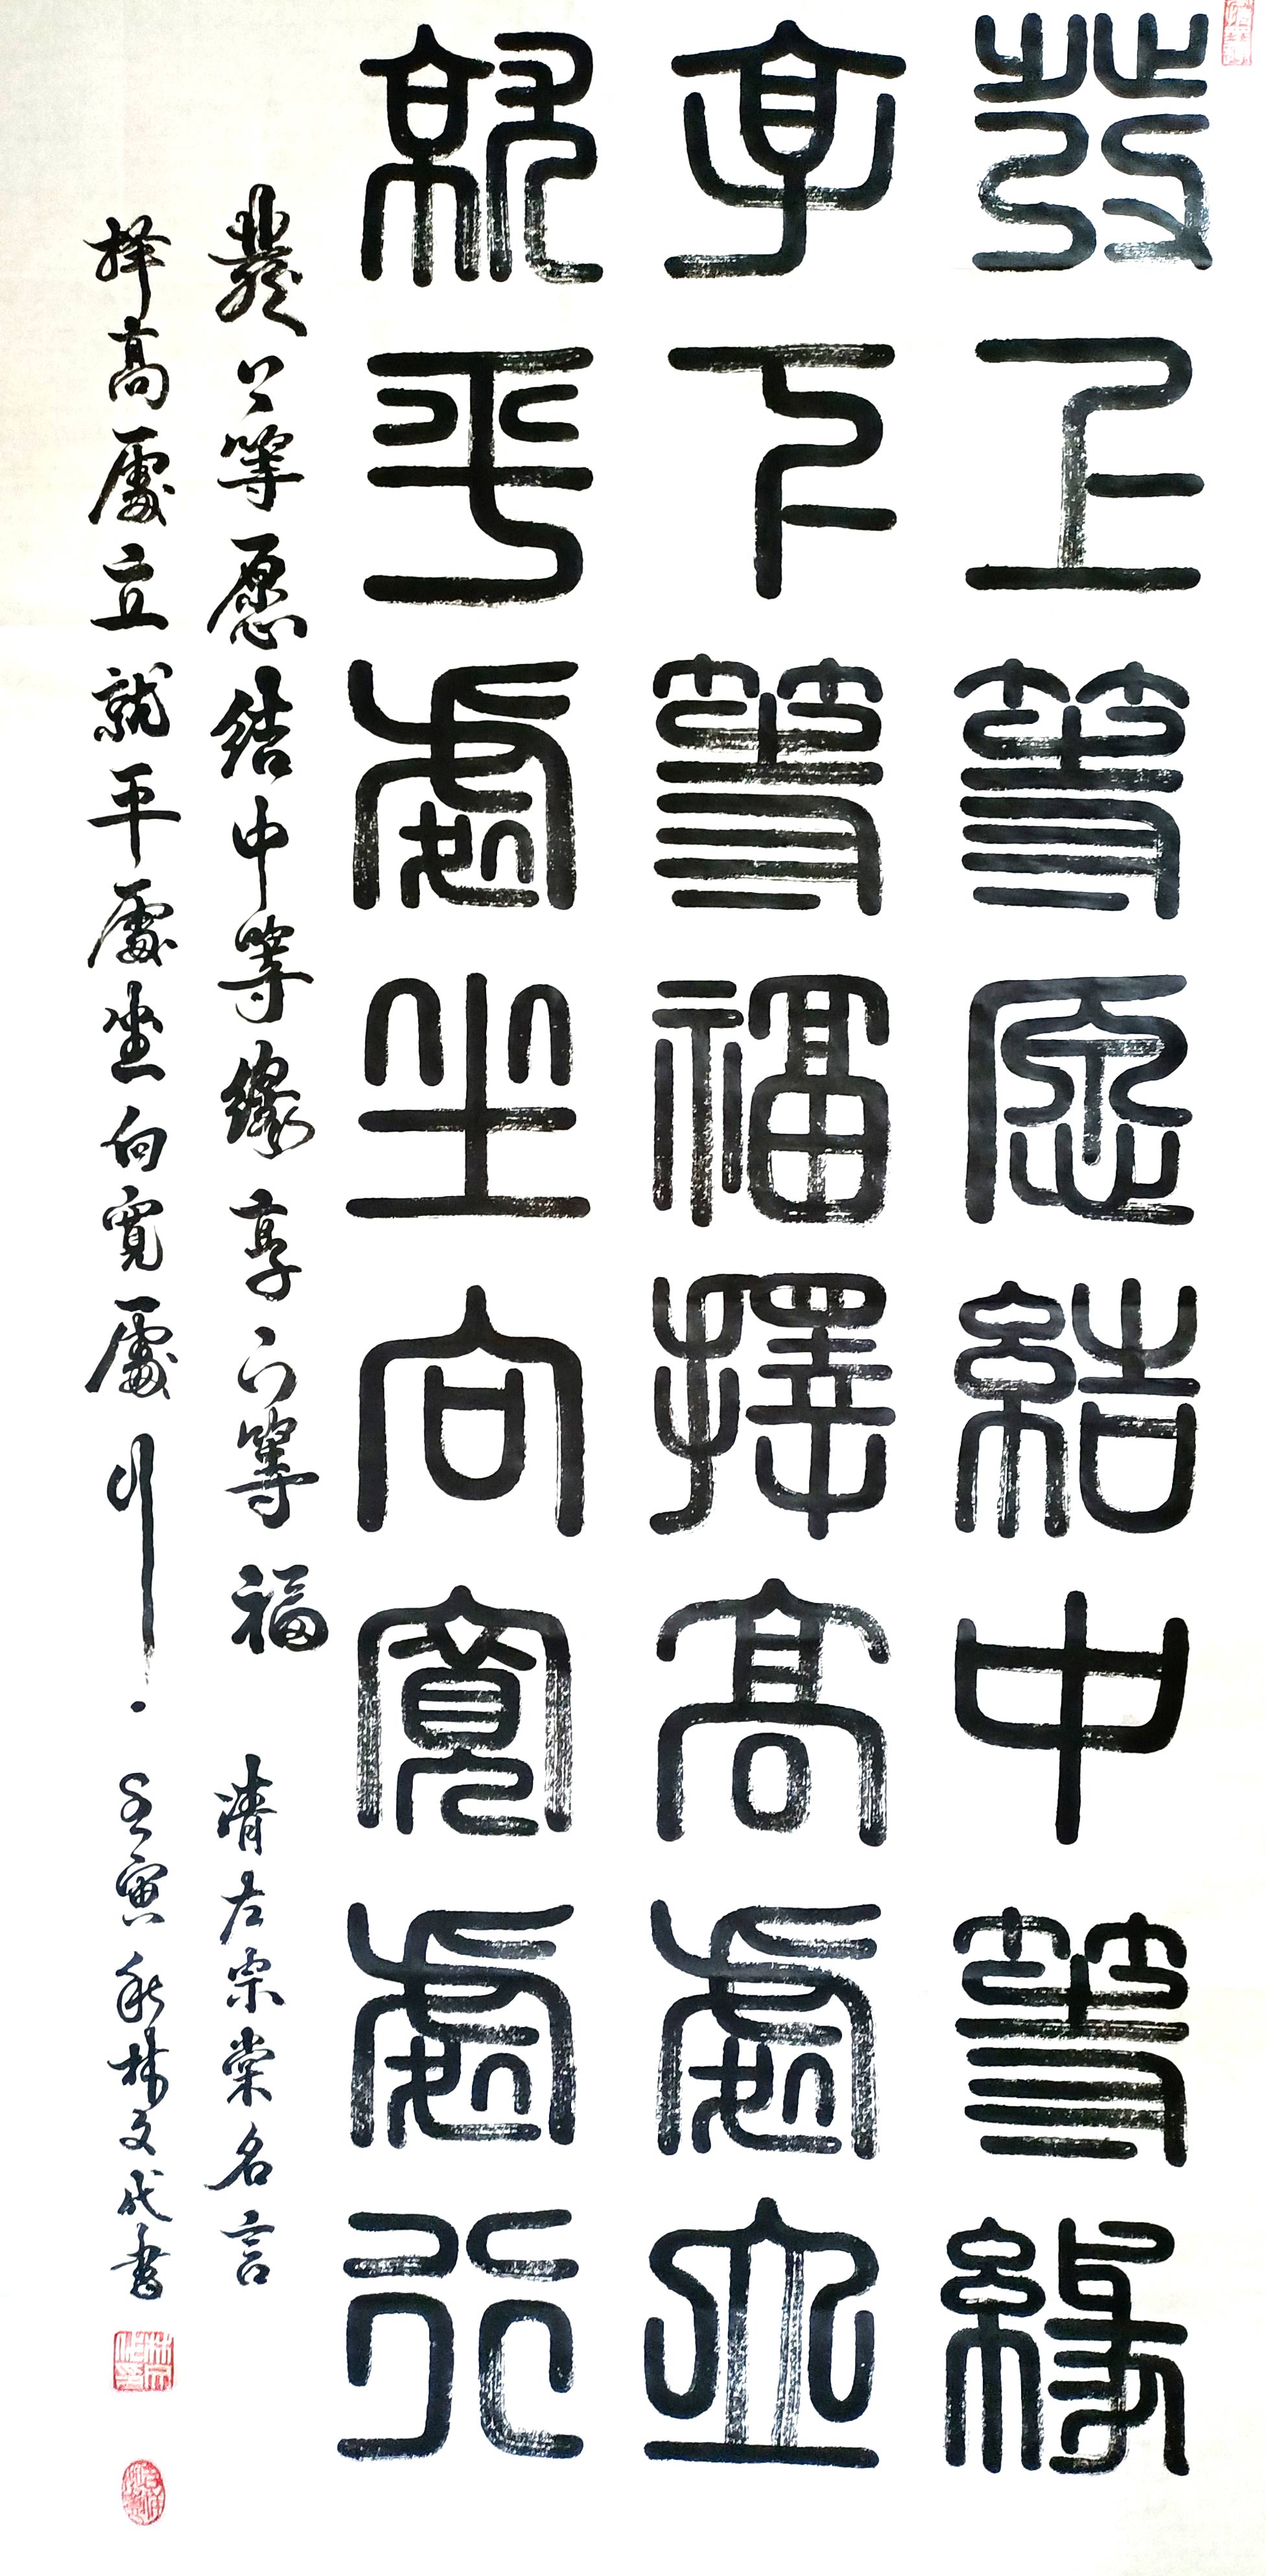 發上等愿結中等緣
享下等福擇高處立
就平處坐向寬處行
發上等愿结中等缘享下等福 清左宗棠名言
择高處立就平處坐向寬處行 壬寅秋林文代书